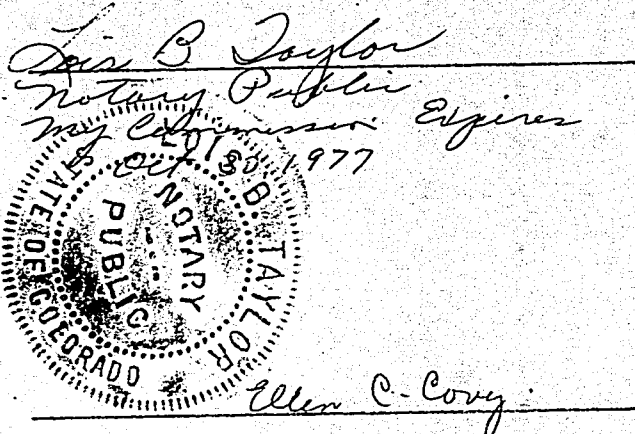 Lois B. Taylor
Notary Public
My Commission Expires
Oct 30 1977
LOIS B. TAYLOR
NOTARY
PUBLIC
STATE OF COLORADO
Ellen C. Covy